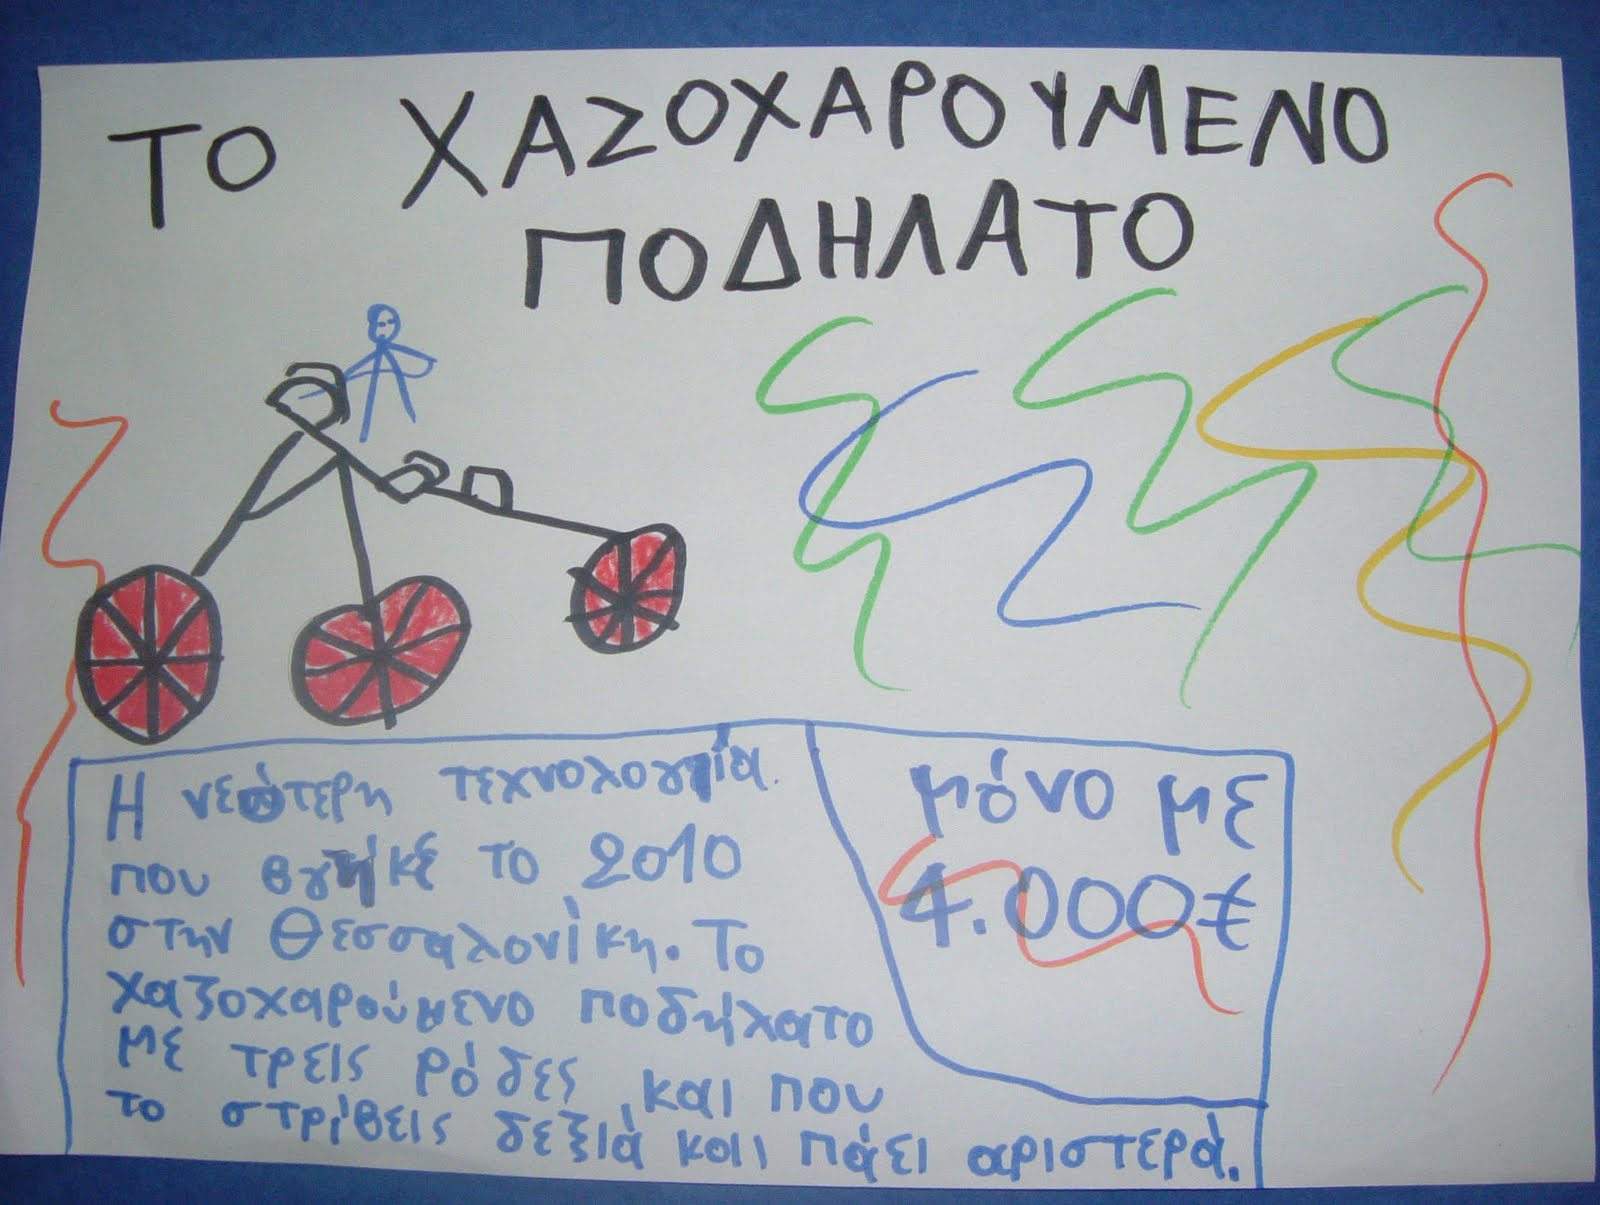 ΤΟ ΧΑΖΟΧΑΡΟΥΜΕΝΟ
ΠΟΔΗΛΑΤΟ
Η νεώτερη τεχνολογία.
που βγήκε το 2010
στην Θεσσαλονίκη. Το
χαζοχαρούμενο ποδήλατο
με τρεις ρόδες, και που
το στρίβεις δεξιά και πάει αριστερά.
μόνο με
4.000€